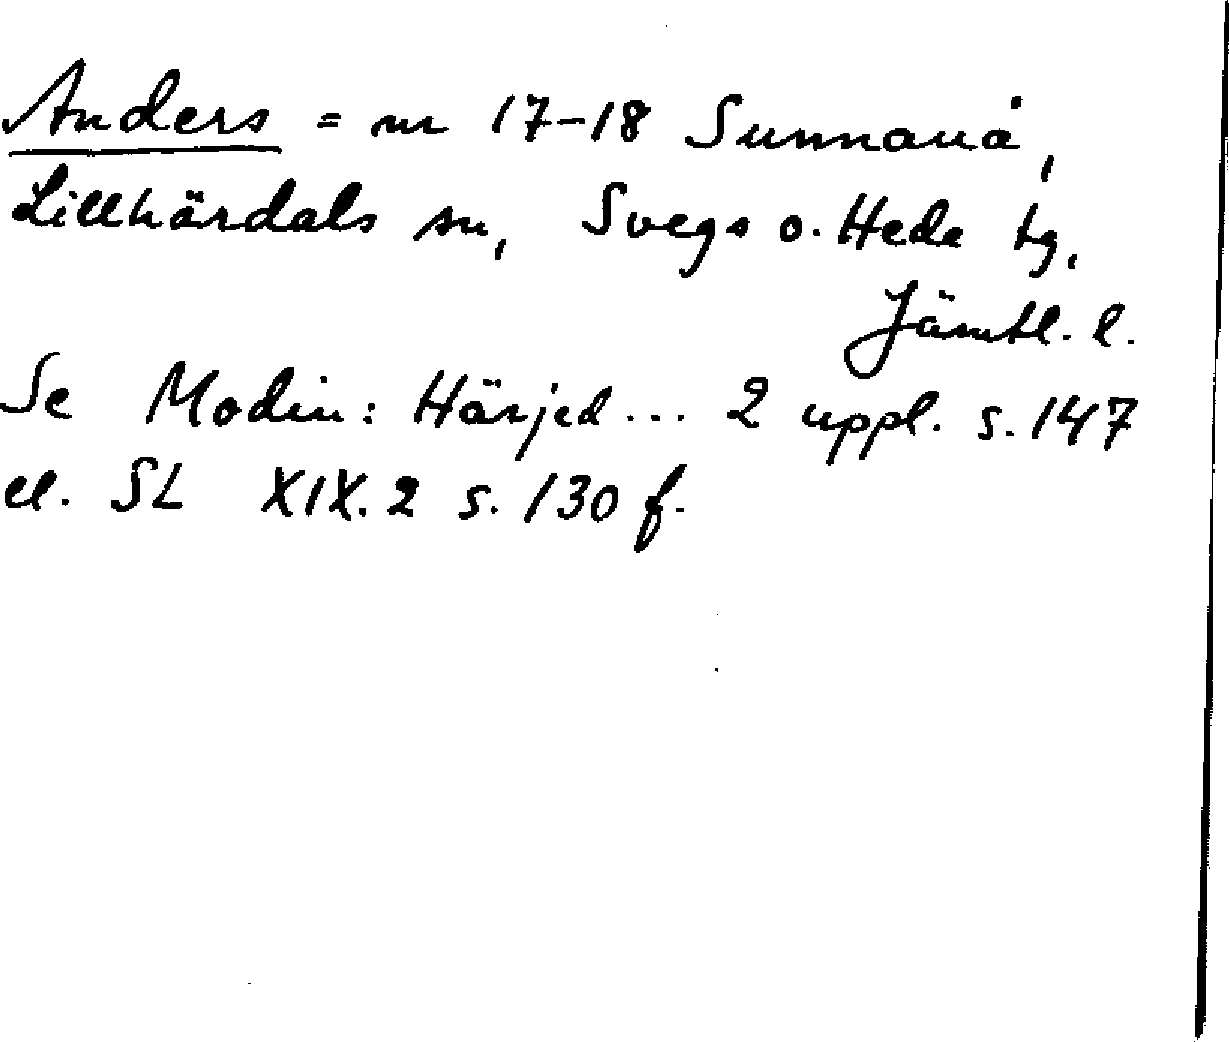 Anders = nr 17-18 Sunnanå,
Lillhärdals sn, Svegs o. Hede tg,
Jämtl. l.
Se Modin: Härjed... 2 uppl. s. 147
el. SL XIX. 2 s. 130 f.